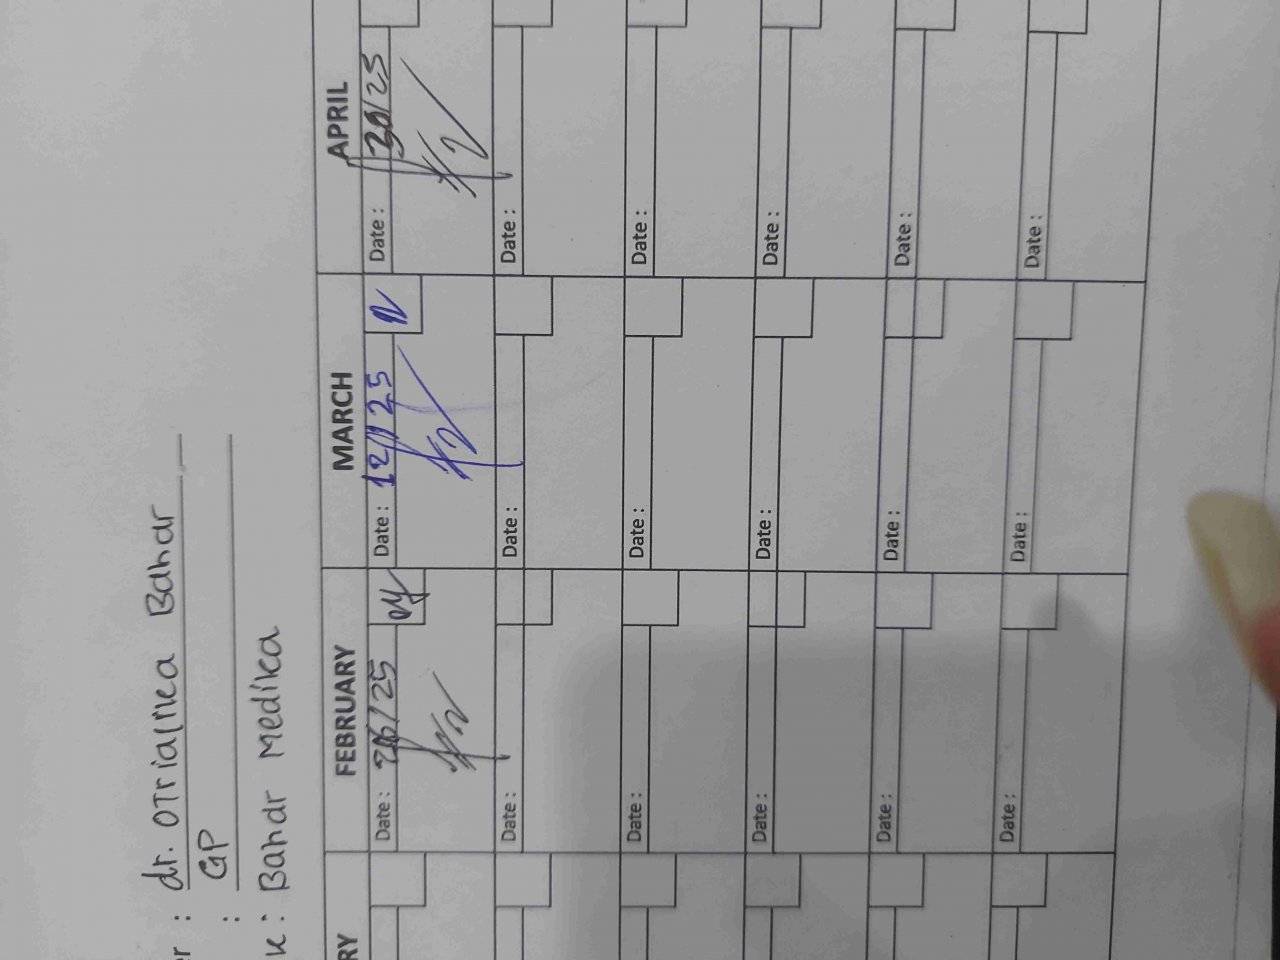 : dr. OTrialnea Bahar
: GP
: Bahar Medika
FEBRUARY MARCH APRIL
Date : 26/25 Date : 12/25 Date : 30/25
Date : Date : Date :
Date : Date : Date :
Date : Date : Date :
Date : Date : Date :
Date : Date : Date :